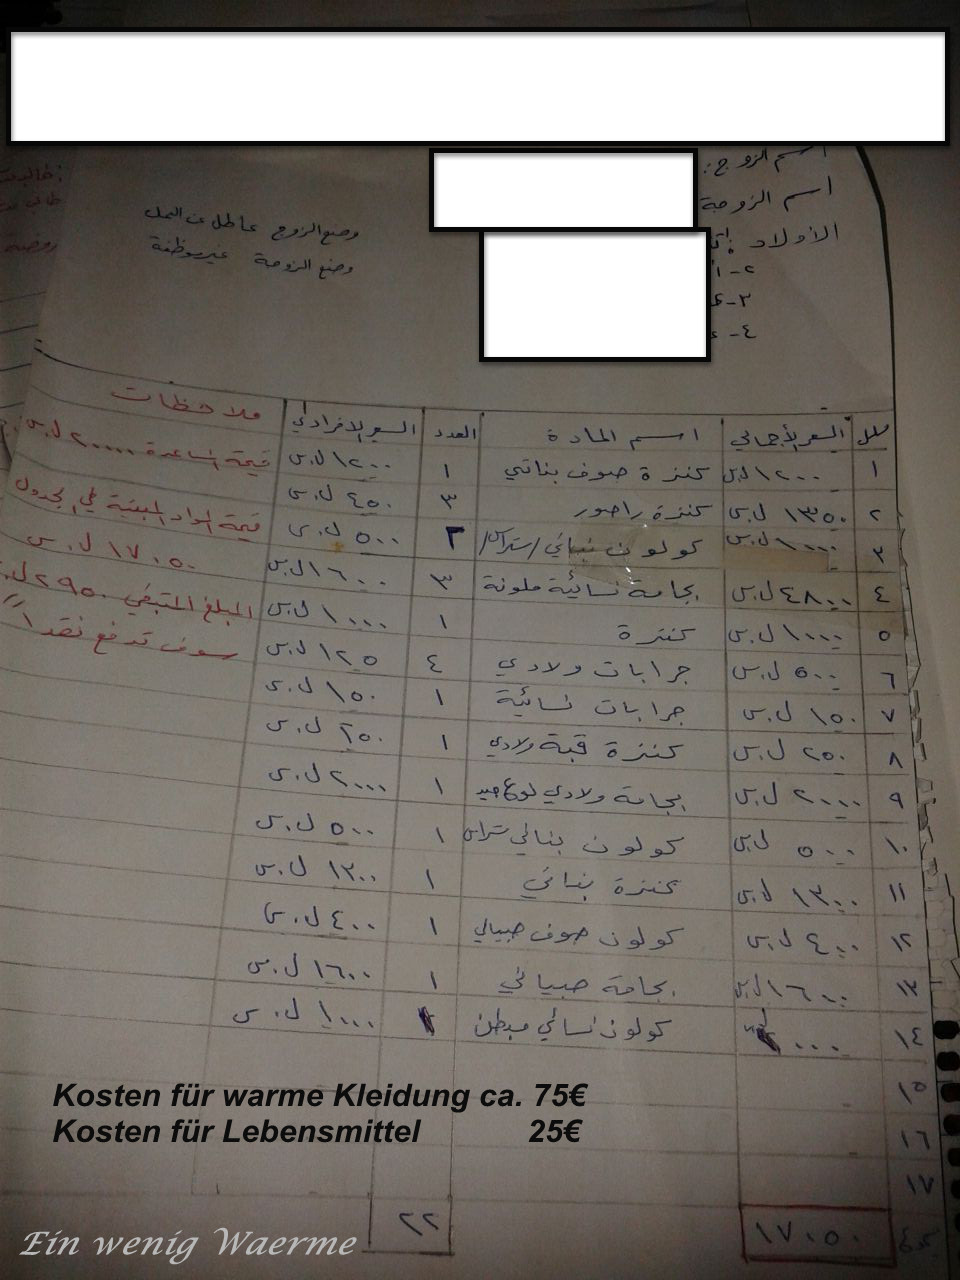 اسم الزوج:
اسم الزوجة
الأولاد
وضع الزوج عاطل عن العمل
وضع الزوجة غير موظفة
٢-
٣-
٤-
السعر الأجمالي اسم المادة العدد السعر الافرادي ملاحظات
١ ١٢٠٠ ل.س كنزة صوف بناتي ١ ١٢٠٠ ل.س قيمة المساعدة ٢٠٠٠٠ ل.س
٢ ١٣٥٠ ل.س كنزة ٣ ٤٥٠ ل.س قيمة المواد المبينة في الجدول
٣ ١٠٠٠ ل.س كولون ٢ ٥٠٠ ل.س ١٧٠٥٠ ل.س
٤ ٤٨٠٠ ل.س بجامة نسائية ملونة ٣ ١٦٠٠ ل.س المبلغ المتبقي ٢٩٥٠ ل.س
٥ ١٠٠٠ ل.س كنزة ١ ١٠٠٠ ل.س سوف تدفع نقدا
٦ ٥٠٠ ل.س جرابات ولادي ٤ ١٢٥ ل.س
٧ ١٥٠ ل.س جرابات نسائية ١ ١٥٠ ل.س
٨ ٢٥٠ ل.س كنزة قبة ولادي ١ ٢٥٠ ل.س
٩ ٢٠٠٠ ل.س بجامة ولادي ١ ٢٠٠٠ ل.س
١٠ ٥٠٠ ل.س كولون بناتي ١ ٥٠٠ ل.س
١١ ١٣٠٠ ل.س كنزة بناتي ١ ١٣٠٠ ل.س
١٢ ٤٠٠ ل.س كولون صوف ١ ٤٠٠ ل.س
١٣ ١٦٠٠ ل.س بجامة ١ ١٦٠٠ ل.س
١٤ كولون نسائي مبطن ١٠٠٠ ل.س
١٥
١٦
١٧
Kosten für warme Kleidung ca. 75€
Kosten für Lebensmittel 25€
١٧٠٥٠ ٢٢
Ein wenig Waerme